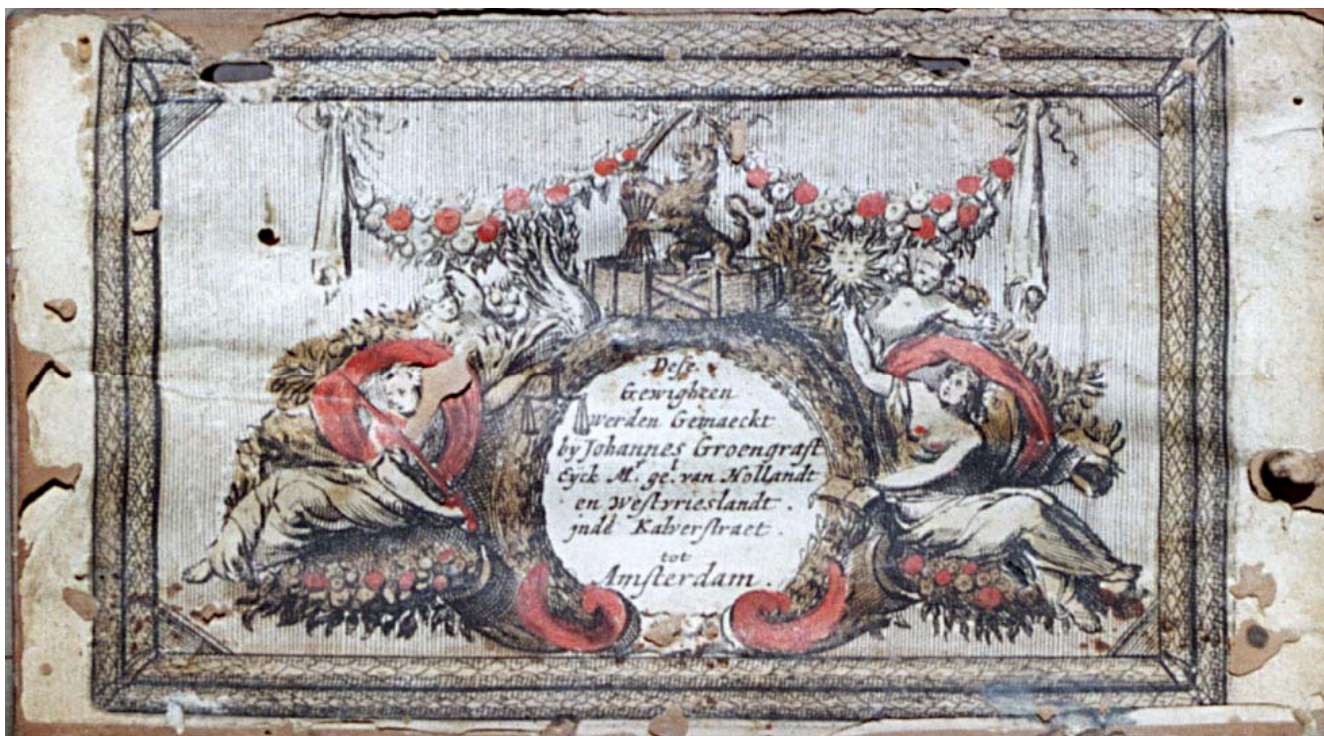 Dese
Gewighten
werden Gemaeckt
by Johannes Groengraft
Eyck Mr. gel. van Hollandt
en Westvrieslandt.
jnde Kalverstraet.
tot
Amsterdam.